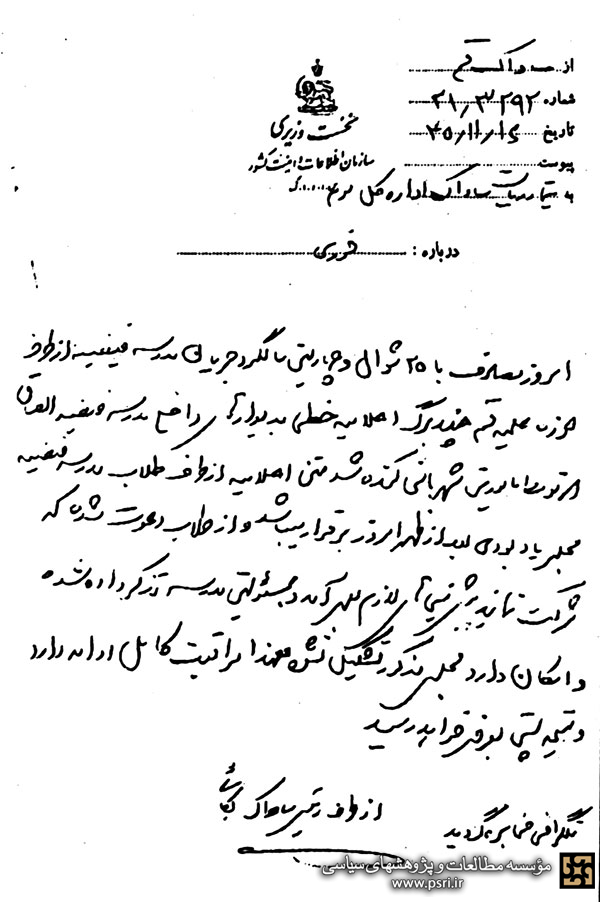 از ساواک قم
شماره ۲۱/۳۲۹۲
تاریخ ۴۵/۱۱/۱۶
پیوست
نخست وزیری
سازمان اطلاعات و امنیت کشور
به تیمسار ریاست ساواک اداره کل سوم
درباره : فوری
امروز مصادف با ۲۵ شوال و چهارمین سالگرد جریان مدرسه فیضیه از طرف
حوزه علمیه قم چند برگ اعلامیه خطی بدیوارهای داخل مدرسه فیضیه الصاق
که توسط مامورین شهربانی کنده شد متن اعلامیه از طرف طلاب مدرسه فیضیه
مجلس یادبودی بعد از ظهر امروز برقرار میباشد و از طلاب دعوت شده که
شرکت نمایند پیش بینی های لازم بعمل آمد و بمسئولین مدرسه تذکر داده شده
و امکان دارد مجلس مذکور تشکیل نشود معهذا مراقبت کامل ادامه دارد
و نتیجه بعرض خواهد رسید
از طرف رئیس ساواک
تلگرافی مخابره گردید
مؤسسه مطالعات و پژوهشهای سیاسی
www.psri.ir